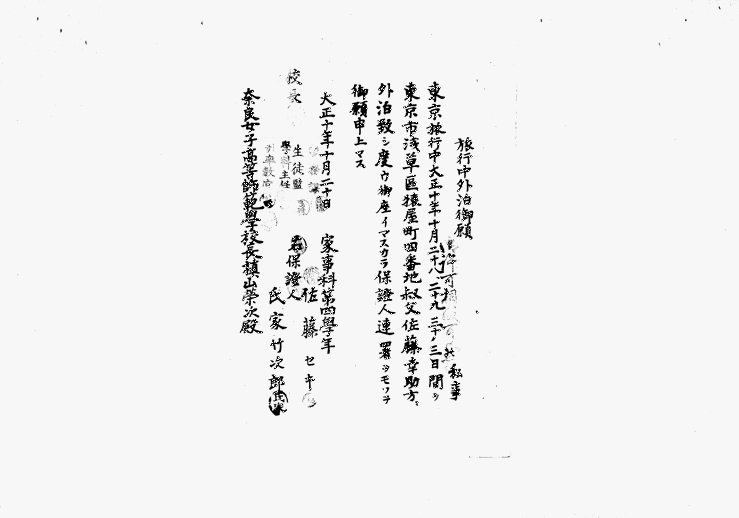 旅行中外泊御願
私事
東京旅行中大正十年十月二十八、二十九、三十ノ三日間ヲ
東京市浅草區猿屋町四番地叔父佐藤幸助方ニ
外泊致シ度ウ御座イマスカラ保證人連署ヲモツテ
御願申上マス
大正十年十月二十日
家事科第四學年
佐藤セキ
右保證人
氏家竹次郎
校長
生徒監
學科主任
奈良女子高等師範學校長槇山榮次殿